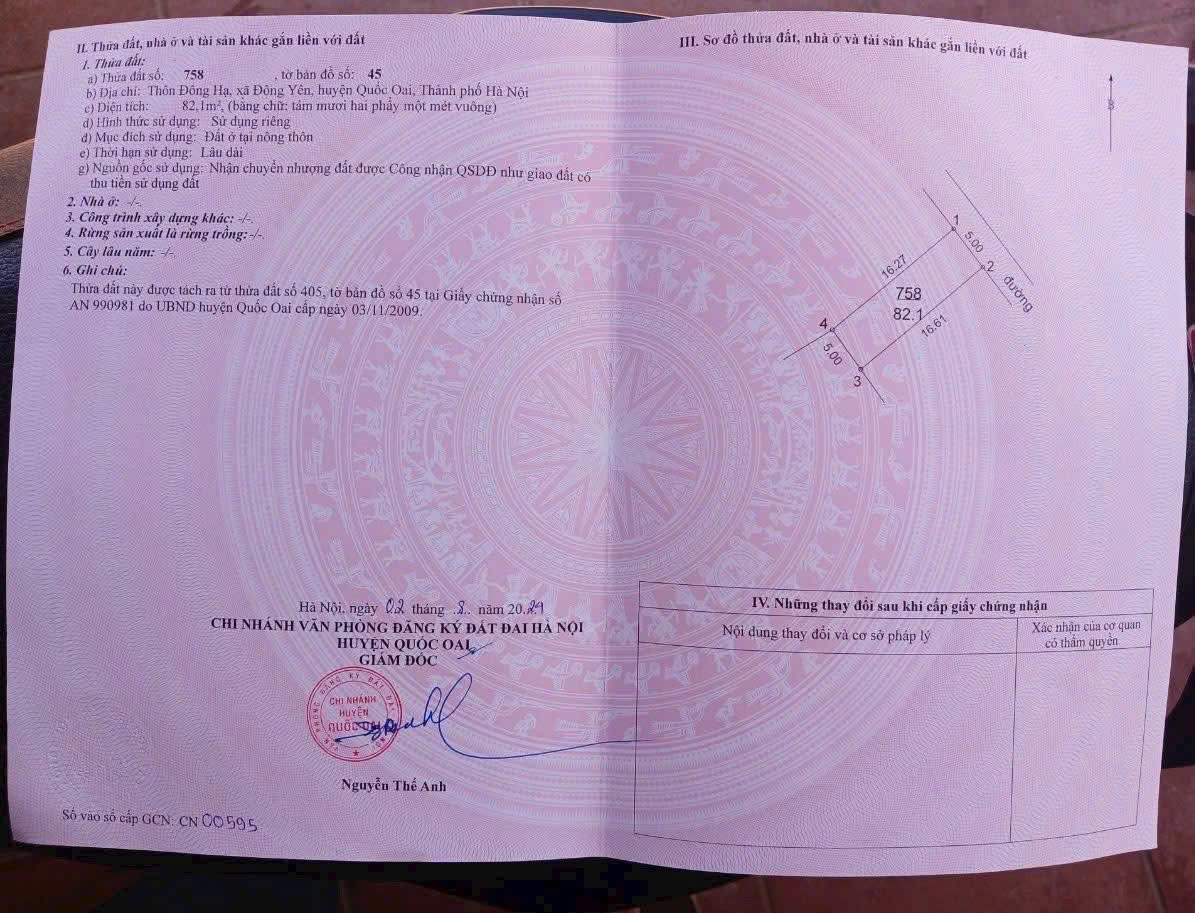 II. Thửa đất, nhà ở và tài sản khác gắn liền với đất
1. Thửa đất:
a) Thửa đất số: 758 , tờ bản đồ số: 45
b) Địa chỉ: Thôn Đông Hạ, xã Đông Yên, huyện Quốc Oai, Thành phố Hà Nội
c) Diện tích: 82,1m², (bằng chữ: tám mươi hai phẩy một mét vuông)
d) Hình thức sử dụng: Sử dụng riêng
đ) Mục đích sử dụng: Đất ở tại nông thôn
e) Thời hạn sử dụng: Lâu dài
g) Nguồn gốc sử dụng: Nhận chuyển nhượng đất được Công nhận QSDĐ như giao đất có
thu tiền sử dụng đất
2. Nhà ở: -/-.
3. Công trình xây dựng khác: -/-.
4. Rừng sản xuất là rừng trồng: -/-.
5. Cây lâu năm: -/-.
6. Ghi chú:
Thửa đất này được tách ra từ thửa đất số 405, tờ bản đồ số 45 tại Giấy chứng nhận số
AN 990981 do UBND huyện Quốc Oai cấp ngày 03/11/2009.
Hà Nội, ngày 02 tháng .8.. năm 20.24
CHI NHÁNH VĂN PHÒNG ĐĂNG KÝ ĐẤT ĐAI HÀ NỘI
HUYỆN QUỐC OAI
GIÁM ĐỐC
VĂN PHÒNG ĐĂNG KÝ ĐẤT ĐAI
CHI NHÁNH
HUYỆN
QUỐC
Nguyễn Thế Anh
Số vào sổ cấp GCN: CN 00595
III. Sơ đồ thửa đất, nhà ở và tài sản khác gắn liền với đất
B
1
5.00
2
đường
16.27
758
82.1
16.61
4
5.00
3
IV. Những thay đổi sau khi cấp giấy chứng nhận
Nội dung thay đổi và cơ sở pháp lý
Xác nhận của cơ quan
có thẩm quyền